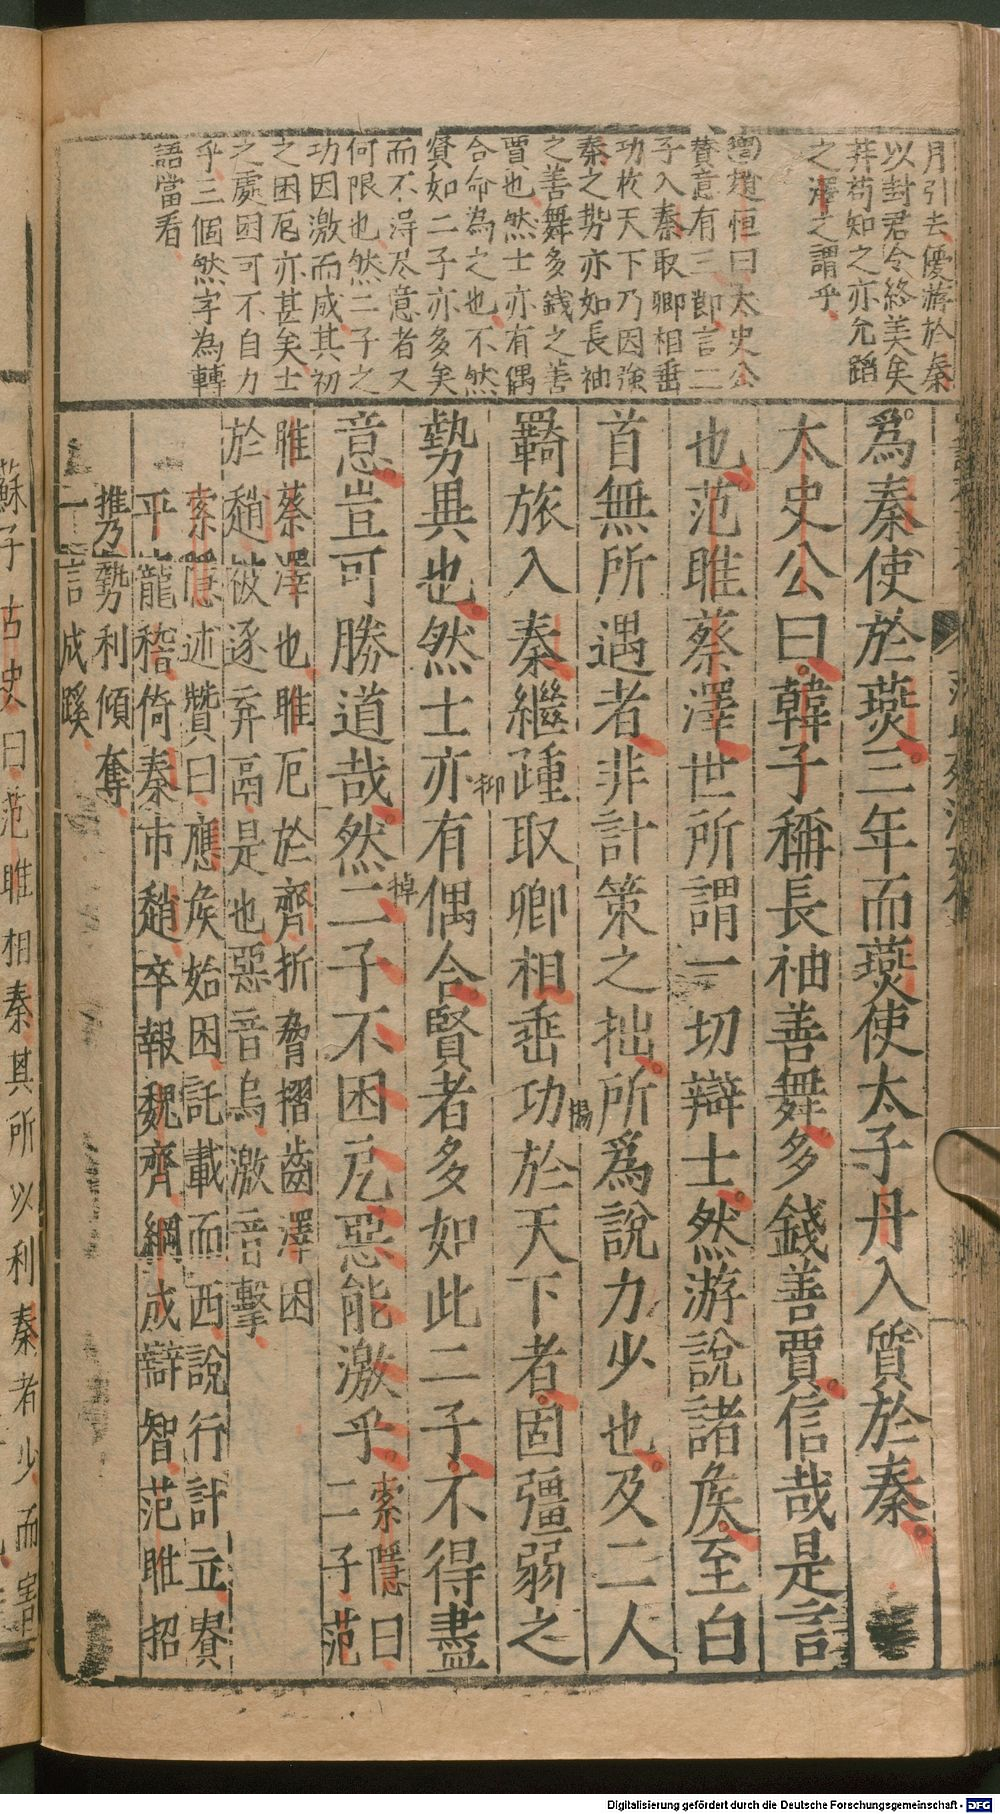 月引去優游於秦
以封君令終美矣
其苟知之亦允蹈
之澤之謂乎
趙恒曰太史公
賛意有三節言二
子入秦取卿相垂
功於天下乃因強
秦之勢亦如長袖
之善舞多錢之善
賈也然士亦有偶
合命為之也不然
賢如二子亦多矣
而不淂尽意者又
何限也然二子之
功因激而成其初
之困厄亦甚矣士
之處困可不自力
乎三個然字為轉
語當看
為秦使於燕三年而燕使太子丹入質於秦
太史公曰韓子稱長袖善舞多錢善賈信哉是言
也范雎蔡澤世所謂一切辯士然游說諸侯至白
首無所遇者非計策之拙所為說力少也及二人
羇旅入秦繼踵取卿相垂功於天下者固彊弱之
勢異也然士亦有偶合賢者多如此二子不得盡
意豈可勝道哉然二子不困戹惡能激乎
索隱曰
二子范
雎蔡澤也雎厄於齊折脅摺齒澤困
於趙被逐弃鬲是也惡音烏激音擊
索隱述贊曰應侯始困託載而西說行計立寵
平寵稽倚秦市趙卒報魏齊綱成辯智范雎招
攜勢利傾奪
一言成蹊
抑
掉
揚
蘇子古史曰范雎相秦其所以利秦者少而害
Digitalisierung gefördert durch die Deutsche Forschungsgemeinschaft - DFG